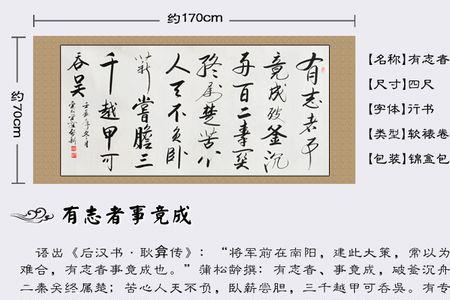 约170cm
约70cm
有志者事
竟成破釜沉
舟百二秦関
終属楚苦心
人天不负卧
薪嘗膽三
千越甲可
吞吴
【名称】有志者
【尺寸】四尺
【字体】行书
【类型】软裱卷
【包装】锦盒包
有志者事竟成
语出《后汉书·耿弇传》：“将军前在南阳，建此大策，常以为
难合，有志者事竟成也。”蒲松龄撰：有志者、事竟成，破釜沉舟
二秦关终属楚；苦心人天不负，卧薪尝胆，三千越甲可吞吴。有专